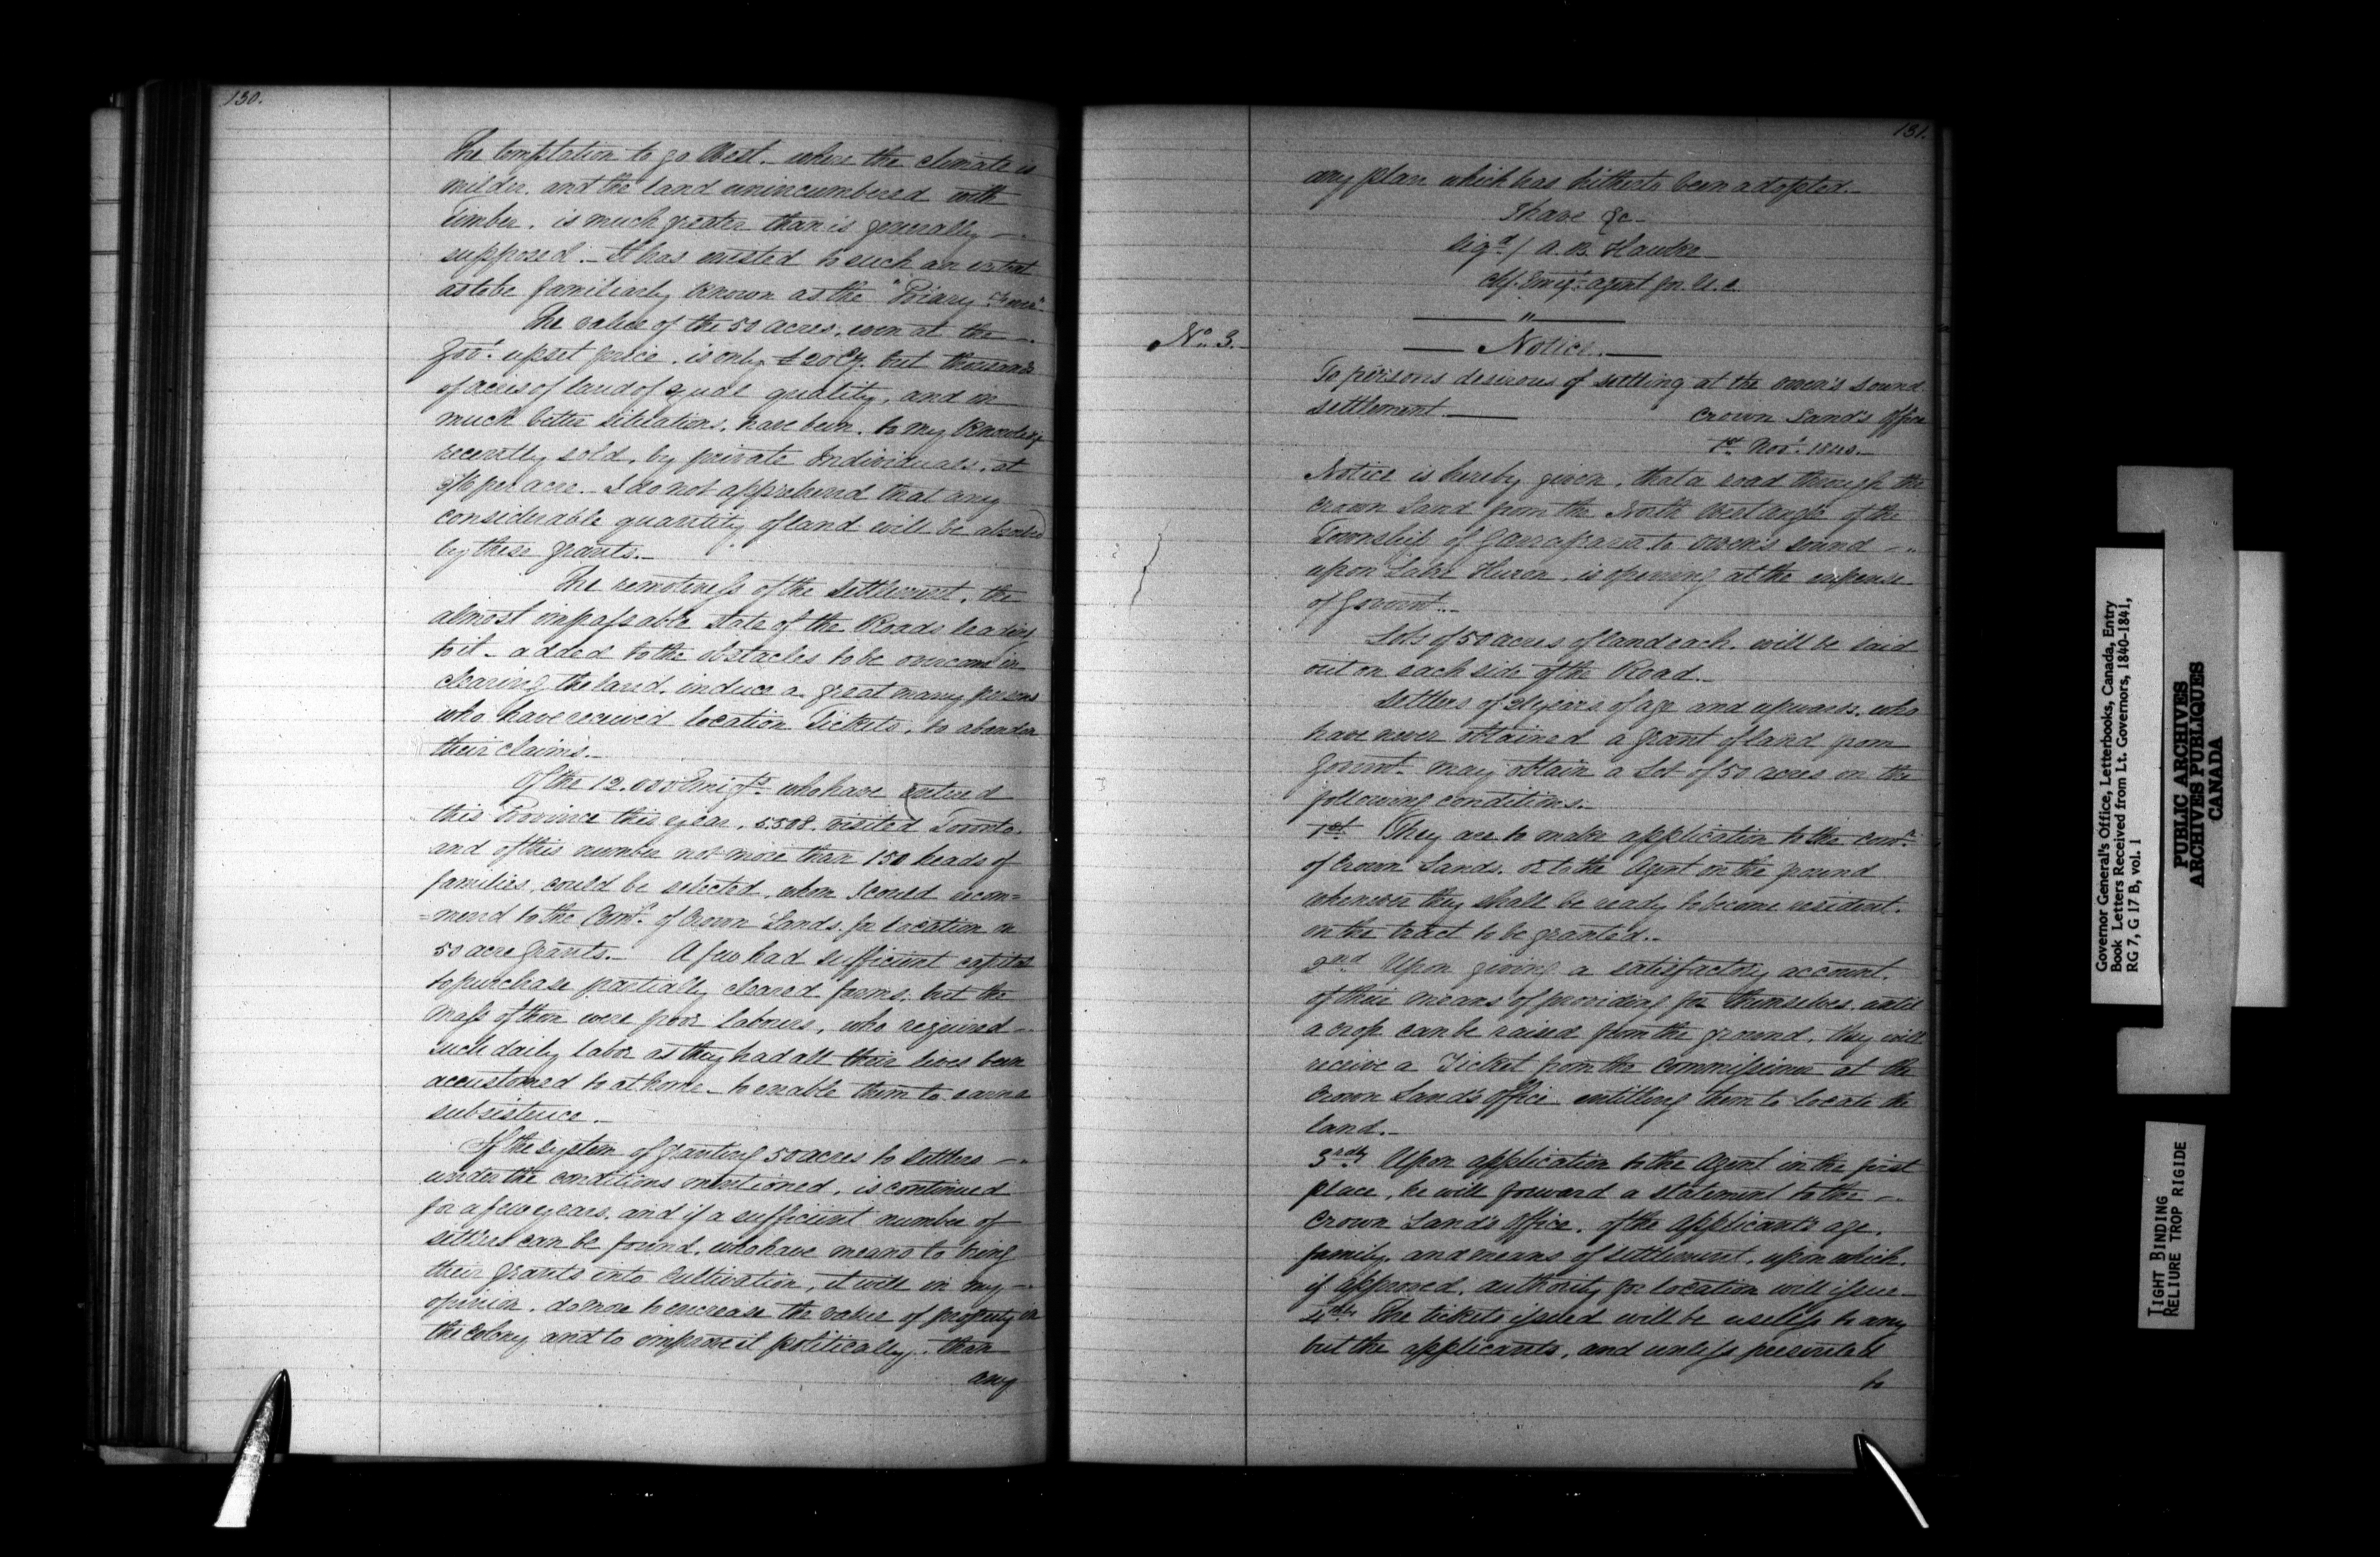 130.
The temptation to go West, where the climate is
milder, and the land unincumbered with
Timber, is much greater than is generally —
supposed. — It has existed to such an extent
as to be familiarly known as the "
The value of the 50 acres, even at the —
Govt. upset price, is only £20 Cy. but thousands
of acres of land of equal quality, and in
much better situations, have been, to my knowledge
recently sold, by private Individuals, at
per acre. I do not apprehend that any
considerable quantity of land will be absorbed
by these grants. —
The remoteness of the Settlement, the
almost impassable state of the Roads leading
to it — added to the obstacles to be overcome in
clearing the land, induce a great many persons
who have received location Tickets, to abandon
their claims. —
Of the 12.000 Emigts. who have entered
this Province this year, 5.508. visited Toronto.
and of this number not more than 150 heads of
families, could be selected, whom I could recom=
=mend to the Comr. of Crown Lands, for location on
50 acre grants. — A few had sufficient capital
to purchase partially cleared farms, but the
mass of them were poor laborers, who required —
such daily labor as they had all their lives been
accustomed to at home — to enable them to earn a
subsistence. —
If the system of granting 50 acres to Settlers —
under the conditions mentioned, is continued
for a few years, and if a sufficient number of
settlers can be found, who have means to bring
their grants into cultivation, it will in my —
opinion, do more to encrease the value of property in
the Colony and to improve it politically, than
any
131.
any plan which has hitherto been adopted. —
I have &c —
Sigd / A. B. Hawke
Chf. Emigt. agent for U. C.
No. 3. —
— Notice. —
To persons desirous of settling at the Owen's Sound
settlement. —
Crown Land's Office
1st Novr. 1840. —
Notice is hereby given, that a road through the
Crown Land from the North West angle of the
Township of Garrafraxa to Owen's Sound —
upon Lake Huron, is opening at the expense
of Governt. —
Lots of 50 acres of land each, will be laid
out on each side of the Road. —
Settlers of 21 years of age and upwards, who
have never obtained a grant of land from
Governt. may obtain a Lot of 50 acres on the
following conditions. —
1st. They are to make application to the Comr.
of Crown Lands, or to the Agent on the ground
whenever they shall be ready to become resident.
on the tract to be granted. —
2nd Upon giving a satisfactory account.
of their means of providing for themselves, until
a crop can be raised from the ground, they will
receive a Ticket from the Commissioner at the
Crown Land's Office entitling them to locate the
land. —
3rdly Upon application to the Agent in the first
place, he will forward a statement to the —
Crown Land's Office, of the Applicant's age,
family, and means of settlement, upon which,
if approved, authority for location will issue —
4thly The tickets issued will be useless to any
but the applicants, and unless presented
to
Governor General's Office, Letterbooks, Canada, Entry
Book Letters Received from Lt. Governors, 1840-1841,
RG 7, G 17 B, vol. 1
PUBLIC ARCHIVES
ARCHIVES PUBLIQUES
CANADA
TIGHT BINDING
RELIURE TROP RIGIDE